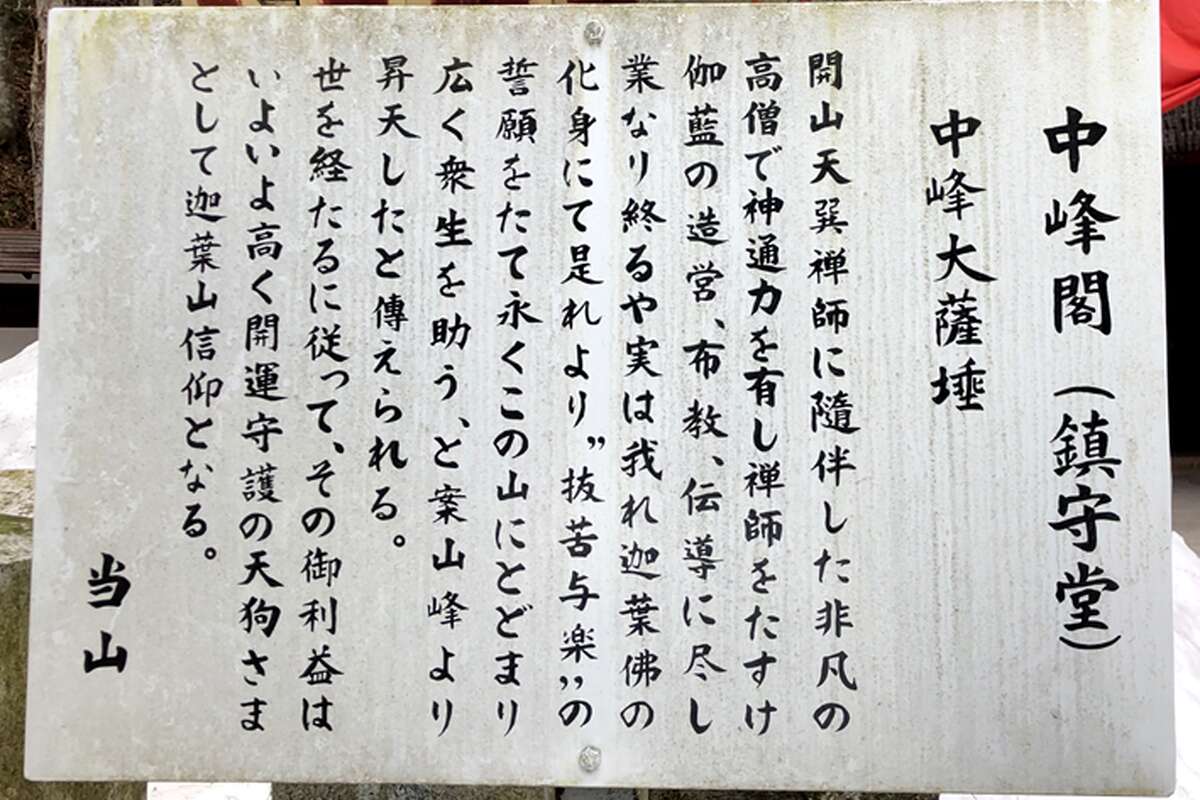 中峰閣（鎮守堂）
中峰大薩埵
開山天巽禅師に隨伴した非凡の
高僧で神通力を有し禅師をたすけ
伽藍の造営、布教、伝導に尽し
業なり終るや実は我れ迦葉佛の
化身にて是れより〝抜苦与楽〟の
誓願をたて永くこの山にとどまり
広く衆生を助う、と案山峰より
昇天したと傳えられる。
世を経たるに従って、その御利益は
いよいよ高く開運守護の天狗さま
として迦葉山信仰となる。
当山